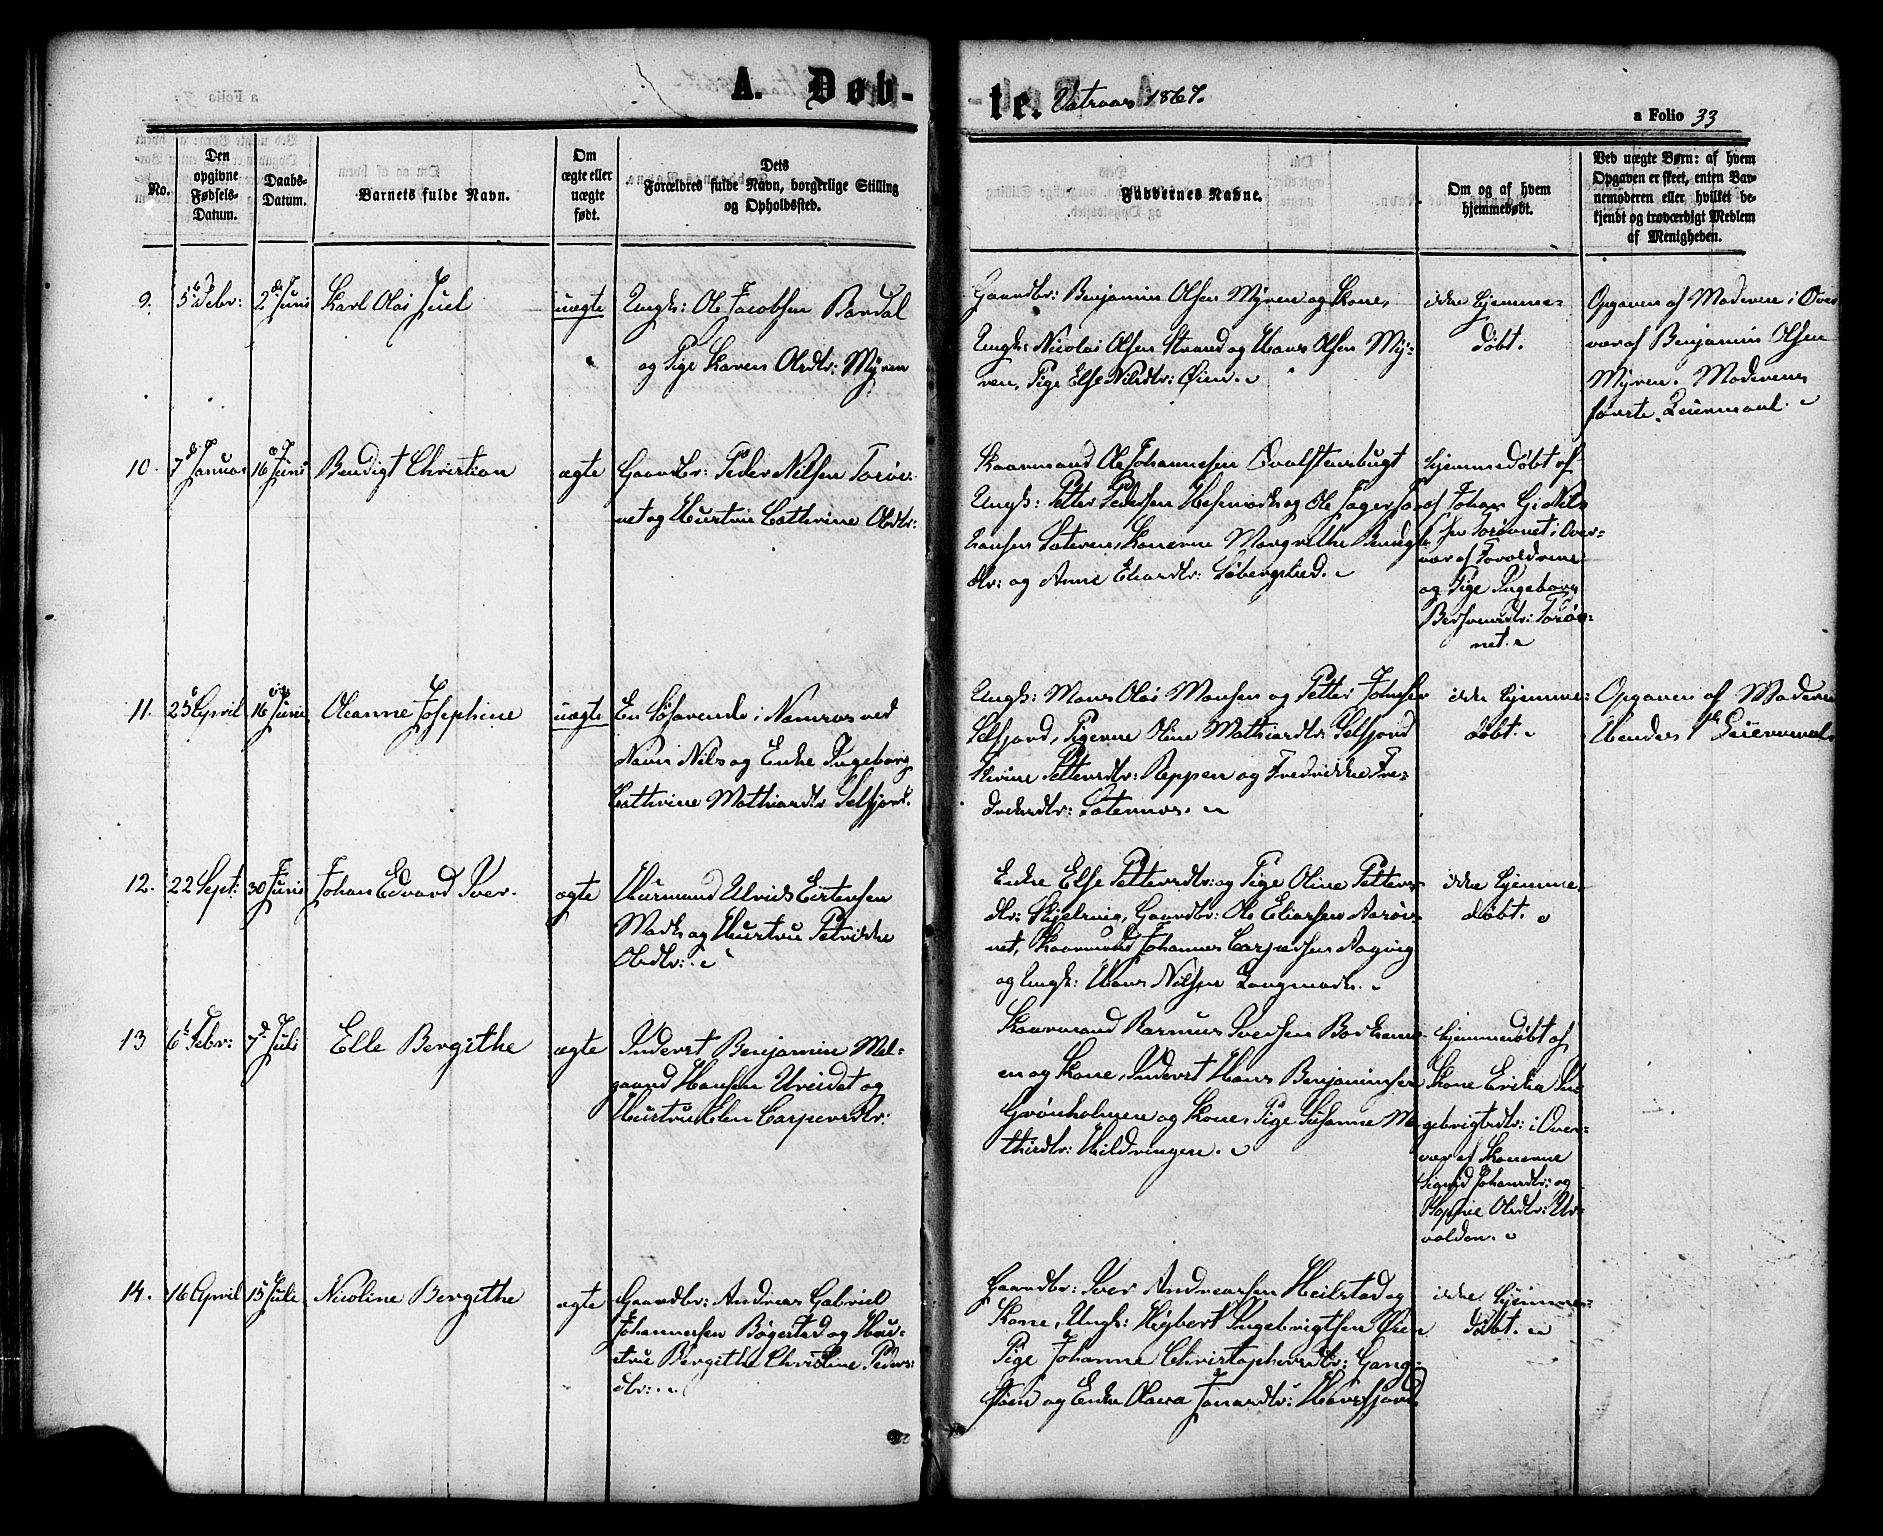 A. Døb-
te. Vatraas 1867.
a Folio 33
No.
Den
opgivne
Fødsels-
Datum.
Daabs-
Datum.
Barnets fulde Navn.
Om
ægte eller
uægte
født.
Dets
Forældres fulde Navn, borgerlige Stilling
og Opholdssted.
Faddernes Navne.
Om og af hvem
hjemmedøbt.
Ved uægte Børn: af hvem
Opgaven er skeet, enten Bar-
nemoderen eller hvilket be-
kjendt og troværdigt Medlem
af Menigheden.
9. 5 Febr: 2 Juni Karl Olai Juel uægte
Ungk: Ole Jacobsen Bardal
og Pige Karen Olsdtr: Myren
Gaardbr: Benjamin Olsen Myren og Kone,
Ungk: Nicolai Olsen Strand og Hans Olsen My-
ren, Pige Else Nilsdtr: Øien.
ikke hjemme-
døbt.
Opgaven af Moderen i Over
vær af Benjamin Olsen
Myren. Moderens
første Leiermaal.
10. 7 Januar 16 Juni Bendigt Christian ægte
Gaardbr: Peder Nilsen Torøe-
net og Hustru Cathrine Olsdtr:
Kaarmand Ole Johannesen Qvalstensbugt
Ungk: Petter Pedersen Hesmark og Ole Jager
Hansen Sateren, Konerne Margrethe Bendigt
dtr: og Anne Eliasdtr: Søbergslied.
hjemmedøbt af
af Johan G. Nils
sen Torøenet i Over-
vær af Forældrene
og Pige Ingeborg
Bersvendtr: Torøe-
net.
11. 25 April 16 Juni Oleanne Josephine uægte
En Søfarende i Namsos ved
Navn Nils og Enke Ingeborg
Cathrine Mathiasdtr Selfjord.
Ungk: Mons Olai Monsen og Petter Johnsen
Selfjord, Pigerne Oline Mathiasdtr Selfjord
Petterdtr: Reppen og Fredrikke Fre-
driksdtr: Saternes.
ikke hjemme-
døbt.
Opgaven af Moderen
Hendes 1ste Leiermaal.
12. 22 Sept: 30 Juni Johan Edvard Iver. ægte
Huusmand Ulrich Eistensen
Mark og Hustru Petrikke
Olsdtr:
Enke Else Pettersdtr: og Pige Oline Petters-
dtr: Skjelving, Gaardbr: Ole Eliassen Aarøe-
net, Kaarmand Johannes Caspersen Aagvig
og Ungk: Hans Nilsen Langmark.
ikke hjemme-
døbt.
13 6 Febr: 7 Juli Elle Bergithe ægte
Inderst Benjamin Mel-
gaard Hansen Ureidet og
Hustru Elen Caspersdtr:
Kaarmand Rasmus Iversen Borkenes-
en og Kone, Inderst Hans Benjaminsen
Grønholmen og Kone, Pige Susanne Ma-
thisdtr: Hildringen.
hjemmedøbt af
Kone Erika In-
gebrigtsdtr: i Over-
vær af Konerne
Sigrid Johansdtr: og
Sophie Olsdtr: Ur-
volden.
14. 16 April 15 Juli Nicoline Bergithe ægte
Gaardbr: Andreas Gabriel
Johannessen Bøgestad og Hus-
tru Bergithe Christine Peders-
dtr:
Gaardbr: Iver Andreassen Heilstad og
Kone, Ungk: Heybert Ingebrigtsen Øien
Pige Johanne Christophersdtr: Gang-
støen og Enke Olava Jonasdtr: Horsfjord.
ikke hjemme-
døbt.